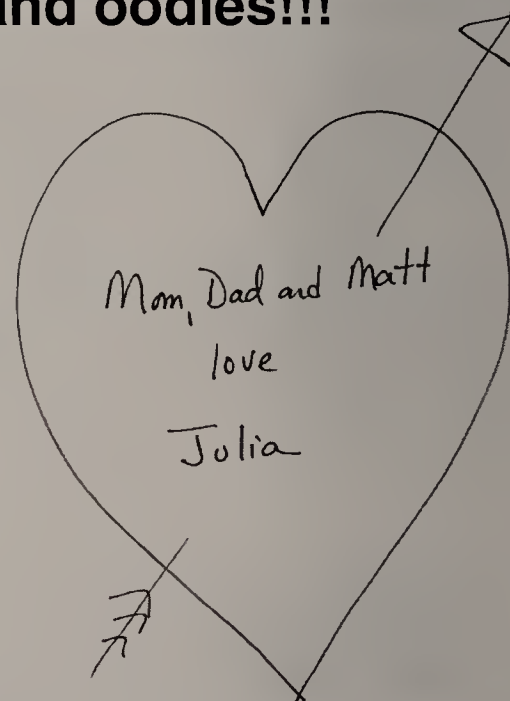 and oodles!!!
Mom, Dad and Matt
love
Julia